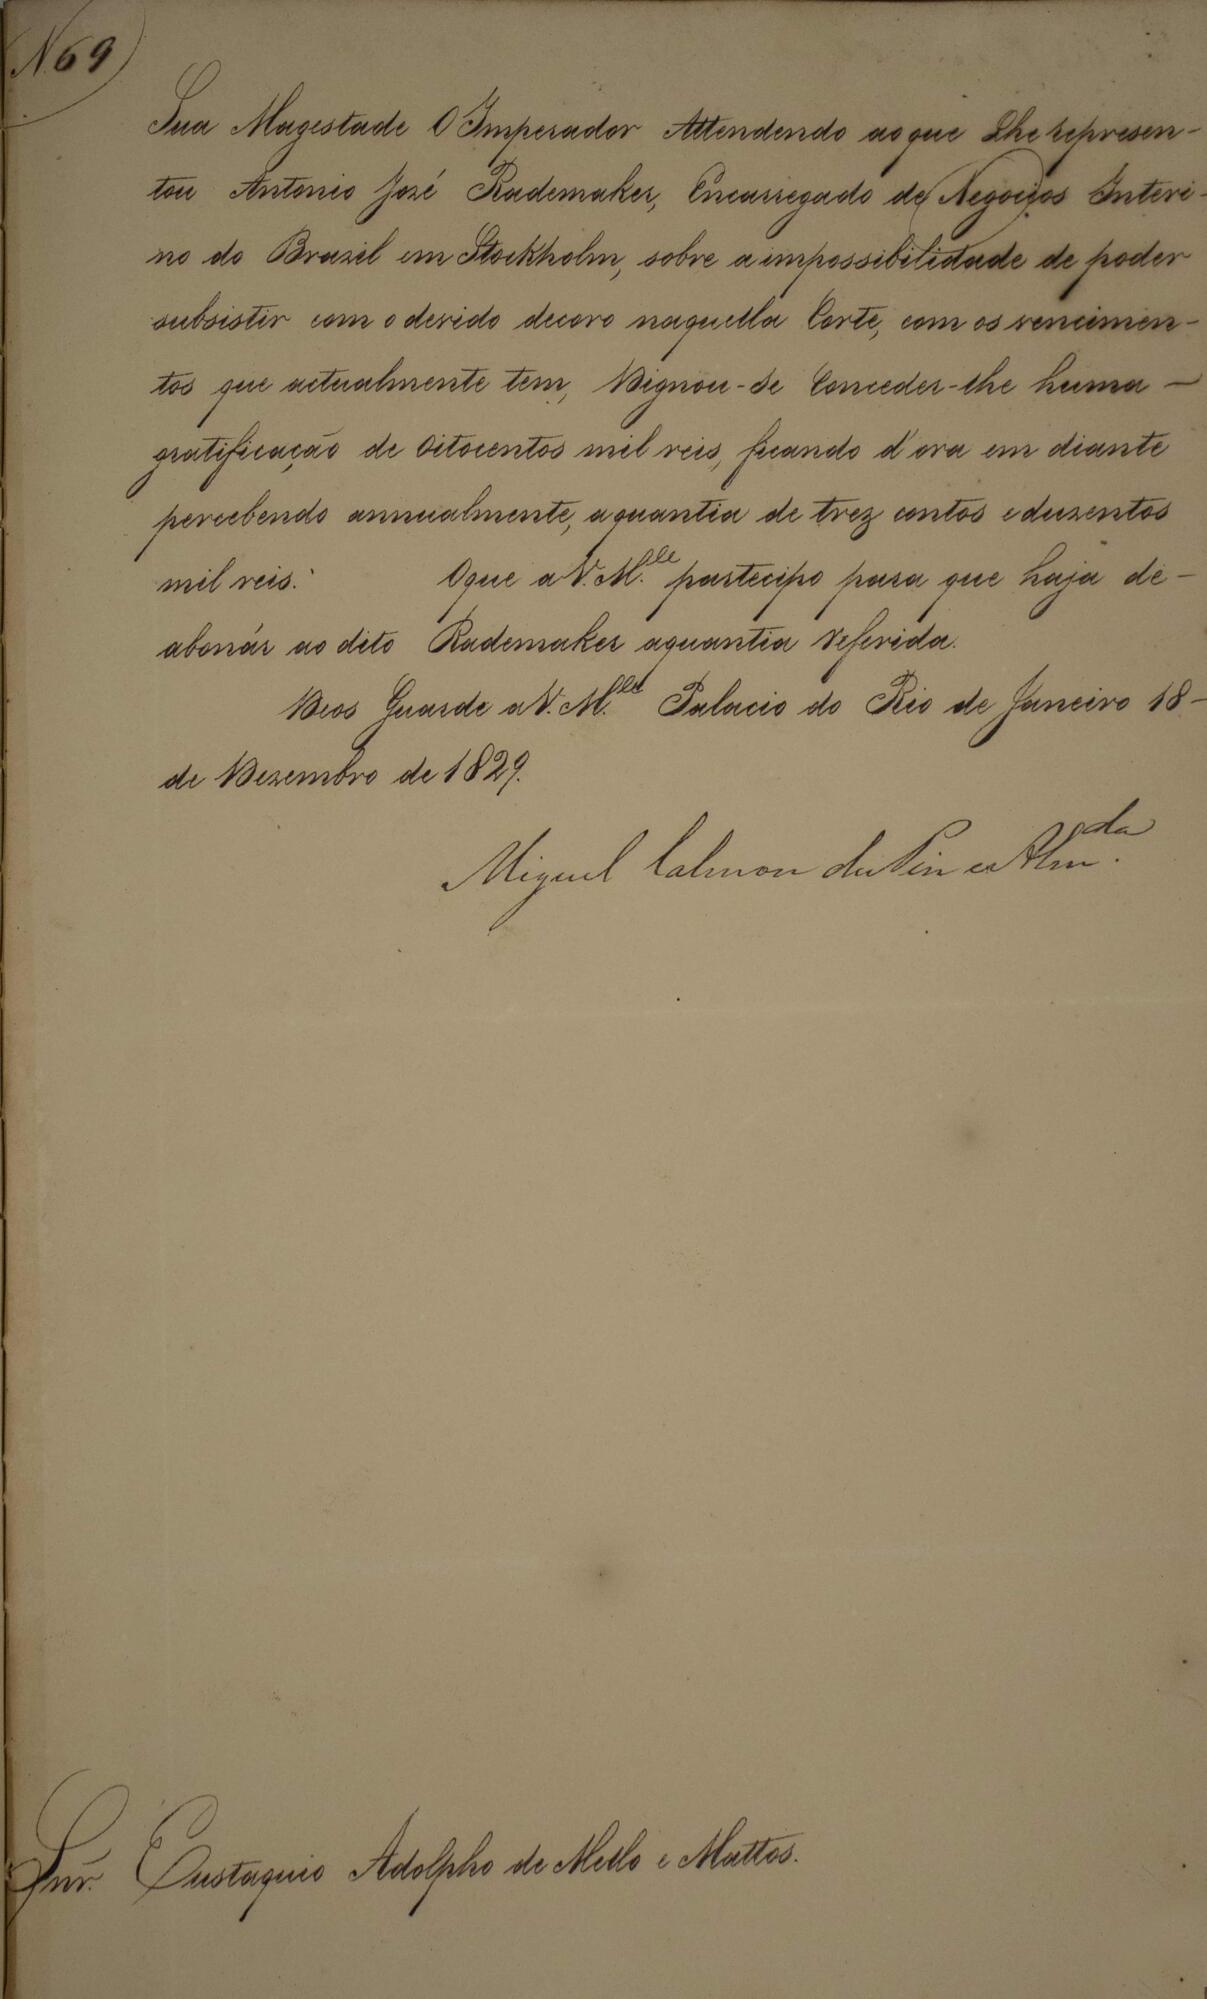 N. 69
Sua Magestade O Imperador Attendendo ao que Lhe represen-
tou Antonio José Rademaker, Encarregado de Negocios Interi-
no do Brazil em Stockholm, sobre a impossibilidade de poder
subsistir com o devido decoro naquella Corte, com os vencimen-
tos que actualmente tem, Dignou-Se Conceder-lhe huma -
gratificação de Oitocentos mil reis, ficando d'ora em diante
percebendo annualmente, a quantia de trez contos e duzentos
mil reis. O que a V. M.ce partecipo para que haja de -
abonár ao dito Rademaker a quantia referida.
Deos Guarde a V. M.ce Palacio do Rio de Janeiro 18 -
de Dezembro de 1829.
Miguel Calmon du Pin e Alm.da
Snr. Eustaquio Adolpho de Mello e Mattos.